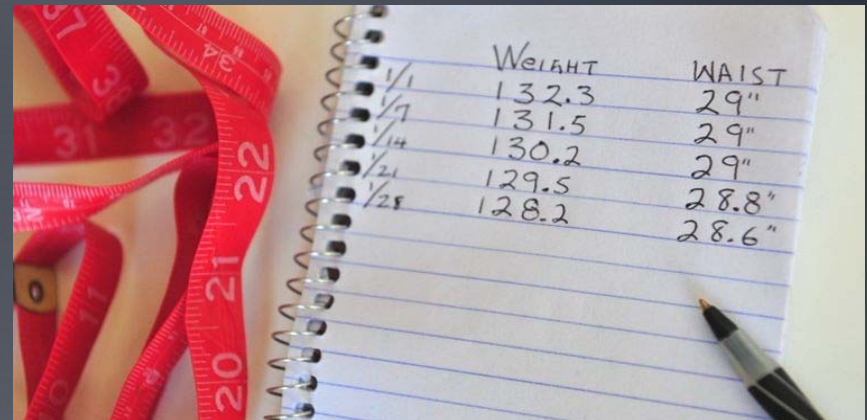 WEIGHT WAIST
1/1 132.3 29"
1/7 131.5 29"
1/14 130.2 29"
1/21 129.5 28.8"
1/28 128.2 28.6"
37
38
34
31 32
22
21
20
11
10